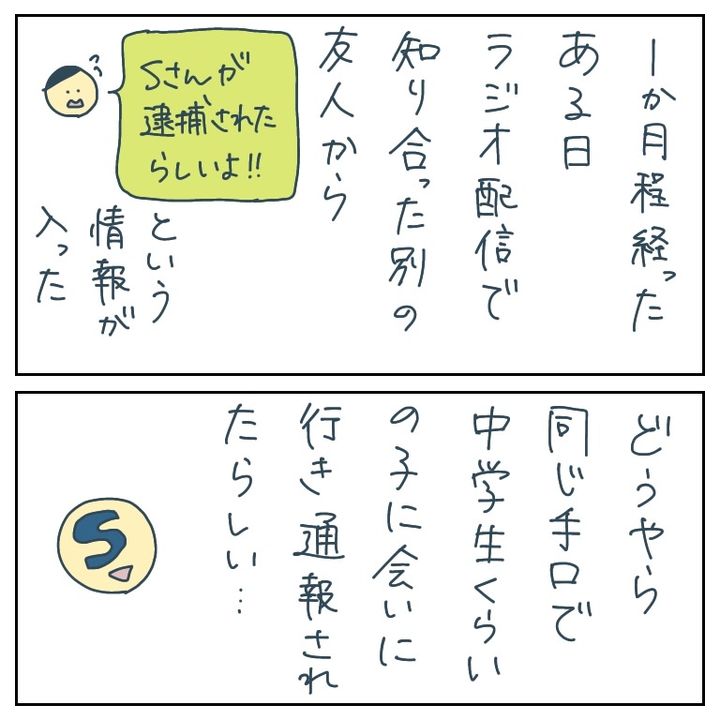 1か月程経った
ある日
ラジオ配信で
知り合った別の
友人から
Sさんが
逮捕された
らしいよ!!
という
情報が
入った
どうやら
同じ手口で
中学生くらい
の子に会いに
行き通報され
たらしい…
S